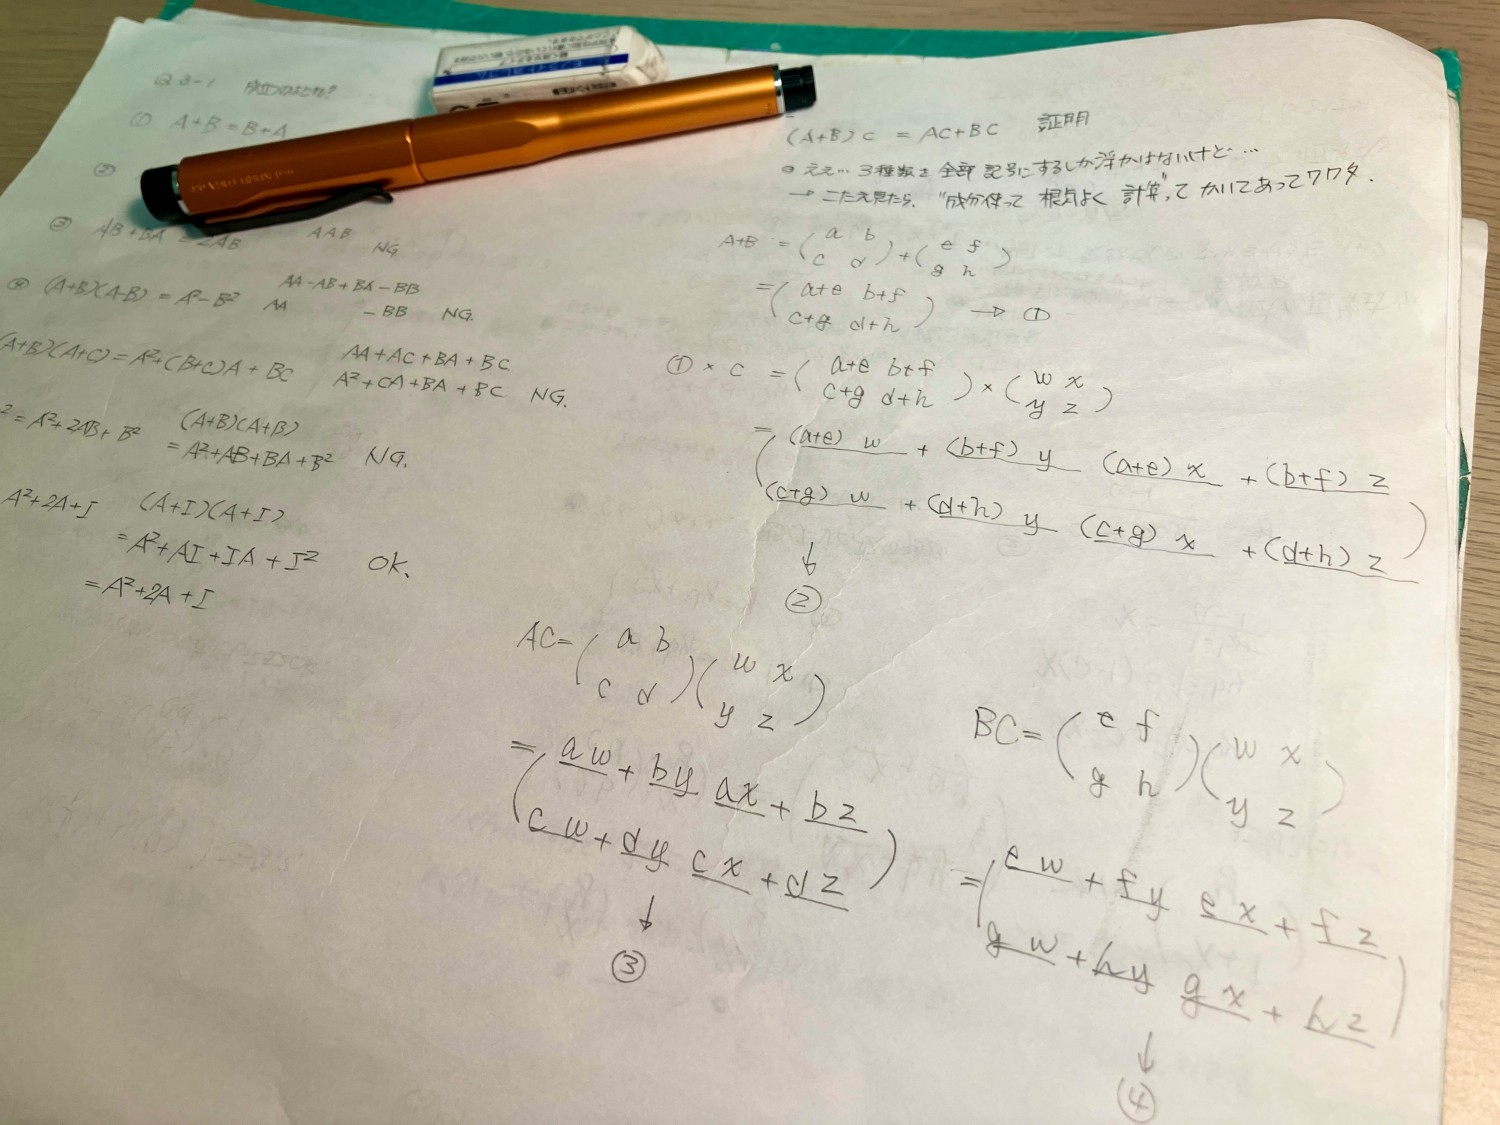 Q 3-1 成立つのはどれ?
① A+B=B+A
②
③ AB+BA=2AB AAB NG
④ (A+B)(A-B)=A²-B² AA-AB+BA-BB
AA -BB NG.
(A+B)(A+C)=A²+(B+C)A+BC AA+AC+BA+BC
A²+CA+BA+BC NG.
²=A²+2AB+B² (A+B)(A+B)
=A²+AB+BA+B² NG.
A²+2A+I (A+I)(A+I)
=A²+AI+IA+I² OK.
=A²+2A+I
(A+B)C = AC+BC 証明
ええ… 3種類を全部記号にするしか浮かばないけど…
→ こたえ見たら、"成分使って根気よく計算"って かいてあってワワタ.
A+B = (a b) + (e f)
(c d) (g h)
= (a+e b+f)
(c+g d+h) → ①
① × C = (a+e b+f) × (w x)
(c+g d+h) (y z)
= ((a+e)w + (b+f)y (a+e)x + (b+f)z
(c+g)w + (d+h)y (c+g)x + (d+h)z)
↓
②
AC= (a b) (w x)
(c d) (y z)
= (aw+by ax+bz
cw+dy cx+dz)
↓
③
BC= (e f) (w x)
(g h) (y z)
= (ew+fy ex+fz
gw+hy gx+hz)
↓
④